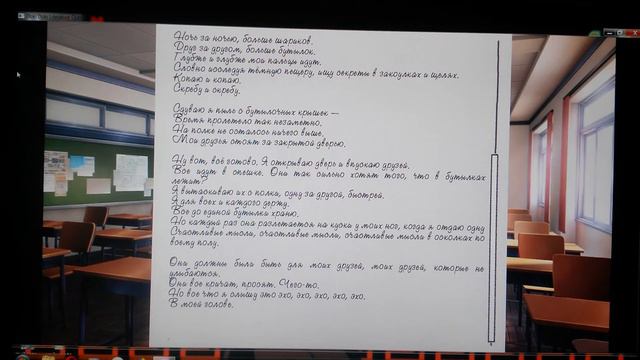 Ночь за ночью, больше шариков.
Друг за другом, больше бутылок.
Глубже и глубже мои пальцы идут.
Словно исследуя тёмную пещеру, ищу секреты в закоулках и щелях.
Копаю и копаю.
Скребу и скребу.
Сдуваю я пыль с бутылочных крышек —
Время пролетело так незаметно.
На полке не осталось ничего выше.
Мои друзья стоят за закрытой дверью.
Ну вот, всё готово. Я открываю дверь и впускаю друзей.
Все идут в спешке. Они так сильно хотят того, что в бутылках
лежит?
Я вытаскиваю их с полки, одну за другой, быстрей.
Я для всех и каждого держу.
Все до единой бутылки храню.
Но каждый раз она разлетается на куски у моих ног, когда я отдаю одну
Счастливые мысли, счастливые мысли, счастливые мысли в осколках по
всему полу.
Они должны были быть для моих друзей, моих друзей, которые не
улыбаются.
Они все кричат, просят. Чего-то.
Но все что я слышу это эхо, эхо, эхо, эхо, эхо.
В моей голове.